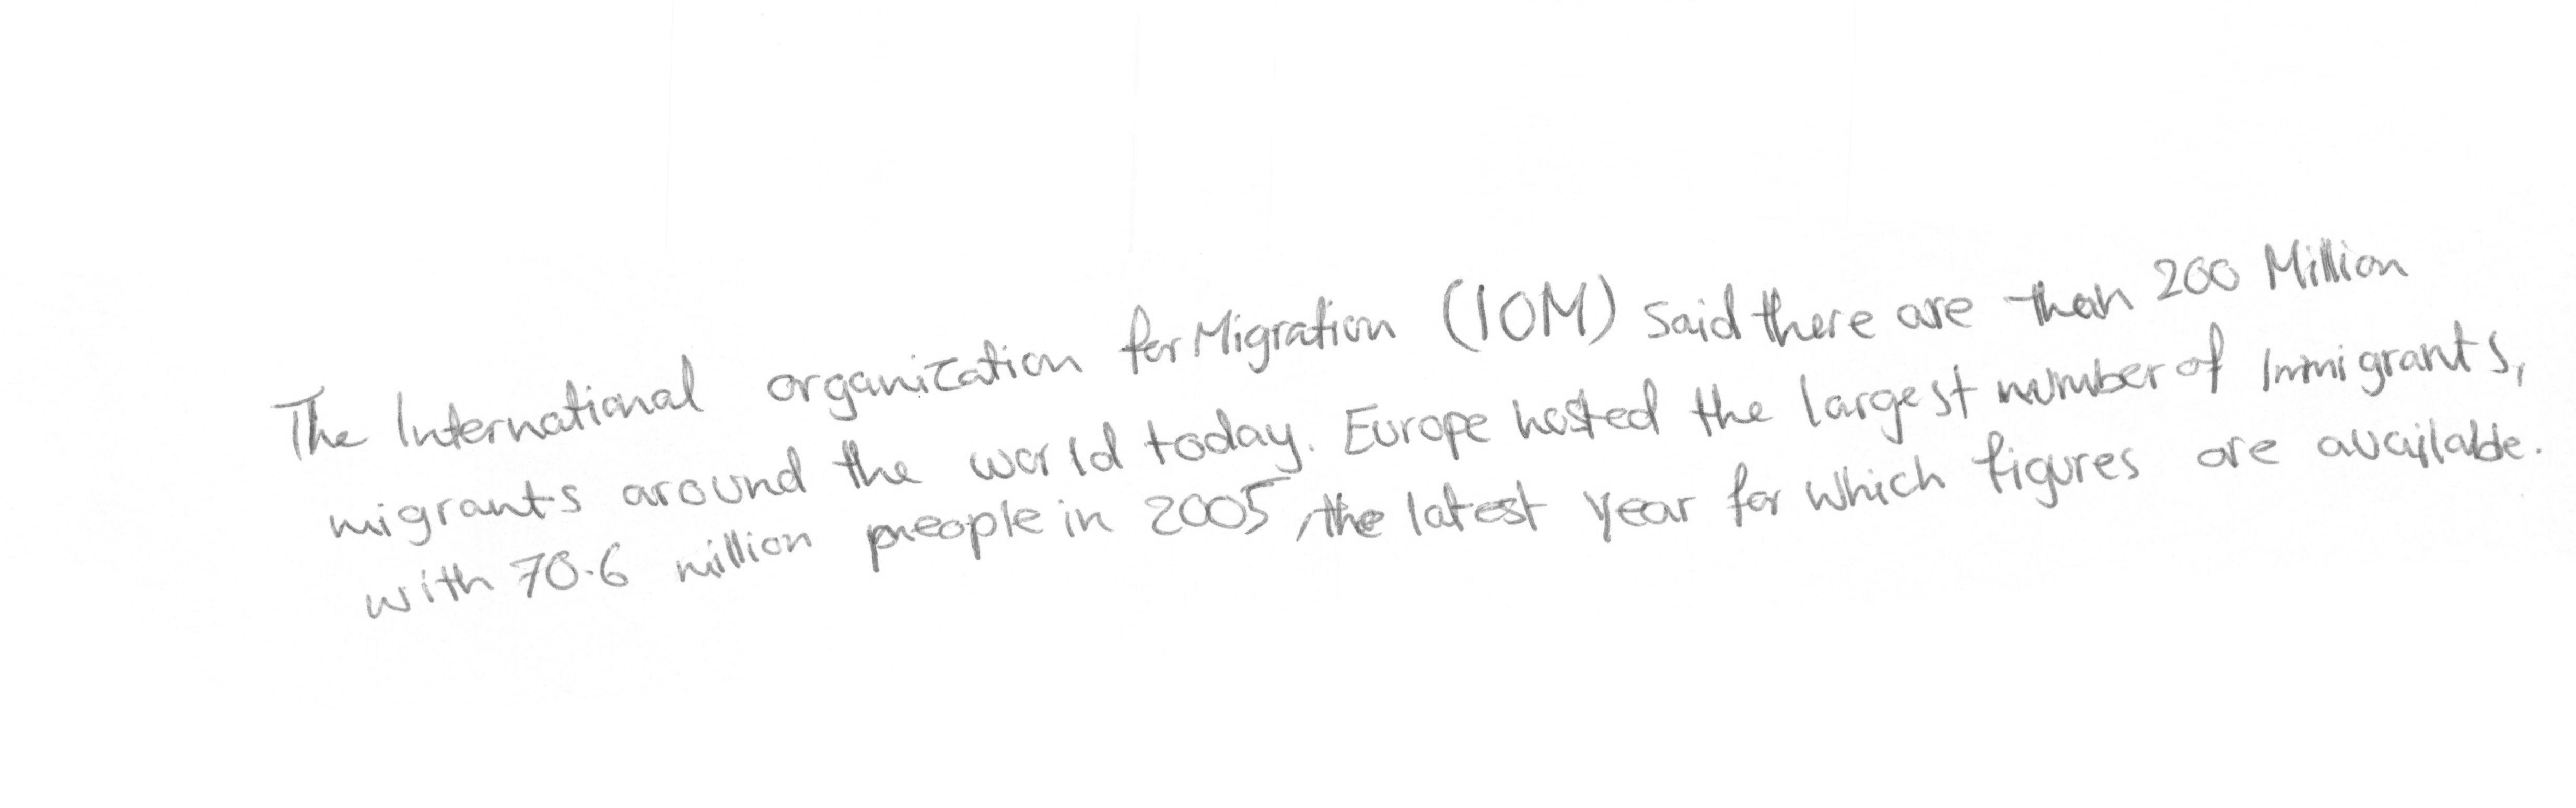 The International organization for Migration (IOM) said there are than 200 Million
migrants around the world today. Europe hosted the largest number of Immigrants,
with 70.6 million people in 2005, the latest year for which figures are available.